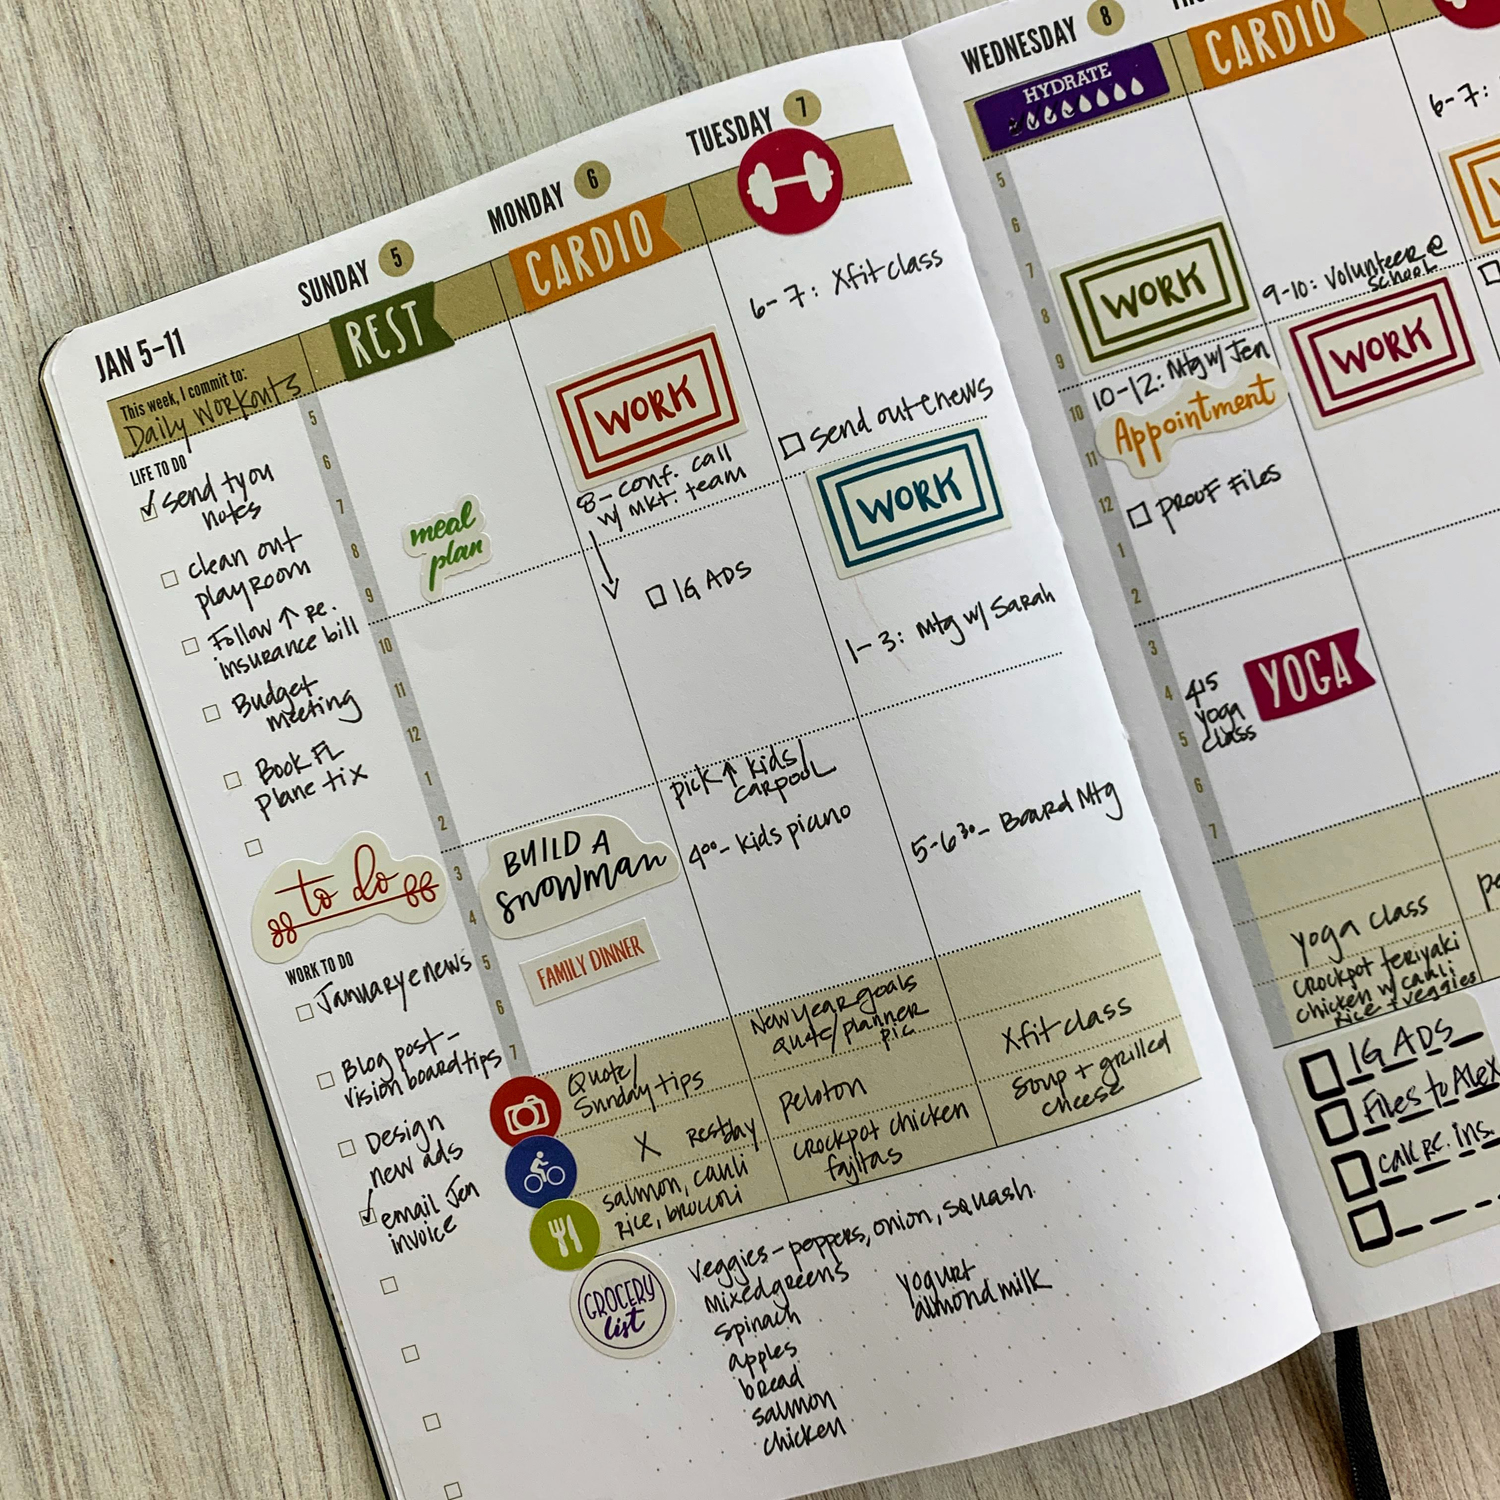 JAN 5–11
This week, I commit to:
Daily Workouts
LIFE TO DO
send t.you
notes
clean out
playroom
Follow ↑ re.
insurance bill
Budget
meeting
Book FL
plane tix
to do
WORK TO DO
January enews
Blog post –
vision board tips
Design
new ads
email Jen
invoice
SUNDAY 5
REST
5
6
7
8
9
10
11
12
1
2
3
4
5
6
7
meal
plan
BUILD A
snowman
FAMILY DINNER
Quote/
Sunday tips
X restday
salmon, cauli
rice, broccoli
MONDAY 6
CARDIO
WORK
8– conf. call
w/ mkt. team
IG ADS
pick ↑ kids/
carpool
4⁰⁰– kids piano
New Year goals
quote/planner
pic
peloton
crockpot chicken
fajitas
TUESDAY 7
6-7: Xfit class
Send out enews
WORK
1-3: Mtg w/ Sarah
5-6³⁰– Board Mtg
Xfit class
soup + grilled
cheese
GROCERY
list
Veggies – peppers, onion, squash
mixed greens
spinach
apples
bread
salmon
chicken
yogurt
almond milk
WEDNESDAY 8
HYDRATE
5
6
7
8
9
10
11
12
1
2
3
4
5
6
7
WORK
10-12: Mtg w/ Jen
Appointment
PROOF FILES
415
yoga
class
YOGA
yoga class
crockpot teriyaki
chicken w/ cauli
rice + veggies
IG ADS
Files to Alex
call re. ins.
CARDIO
9-10: Volunteer @
school
WORK
6-7: